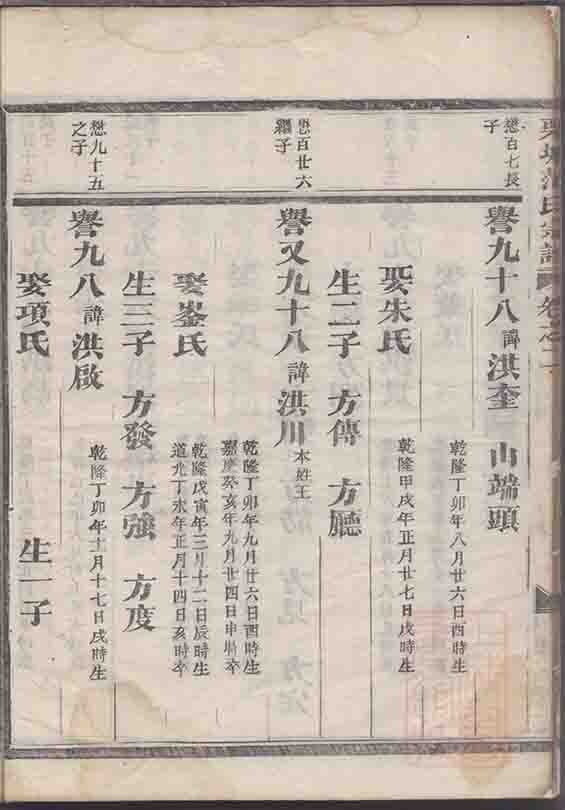 懋百七長
子
譽九十八 諱 洪奎 山端頭
乾隆丁卯年八月廿六日酉時生
娶朱氏
乾隆甲戌年正月廿七日戌時生
生二子 方傳 方廳
懋百廿六
繼子
譽又九十八 諱 洪川 本姓王
乾隆丁卯年九月廿六日酉時生
嘉慶癸亥年九月廿四日申時卒
娶崟氏
乾隆戊寅年三月十二日辰時生
道光丁未年正月十四日亥時卒
生三子 方發 方強 方度
懋九十五
之子
譽九八 諱 洪啟
乾隆丁卯年十一月十七日戌時生
娶項氏
生一子